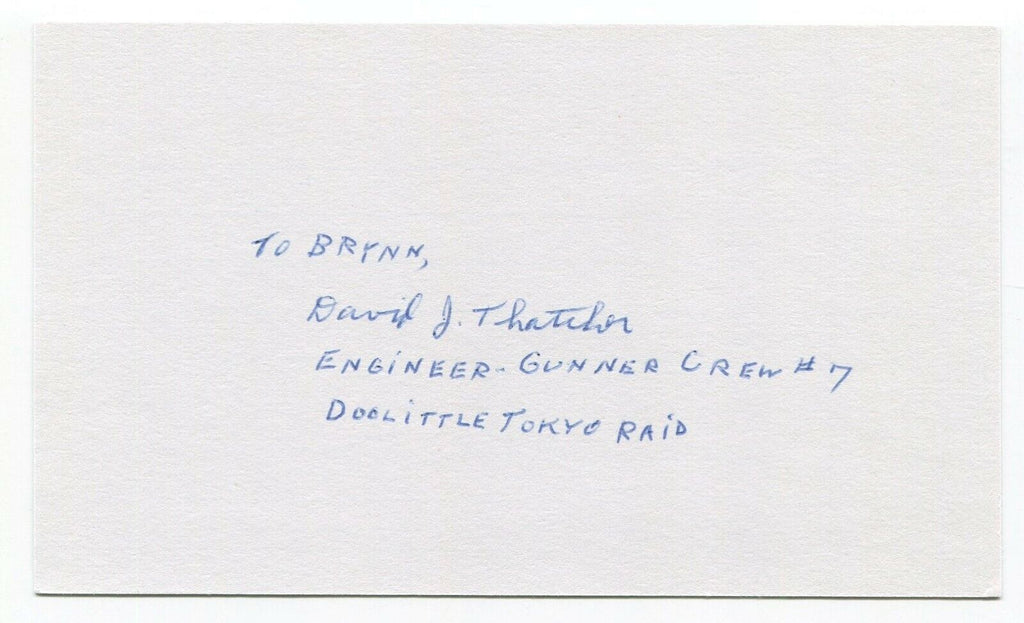 TO BRYNN,
David J. Thatcher
ENGINEER-GUNNER CREW #7
DOOLITTLE TOKYO RAID